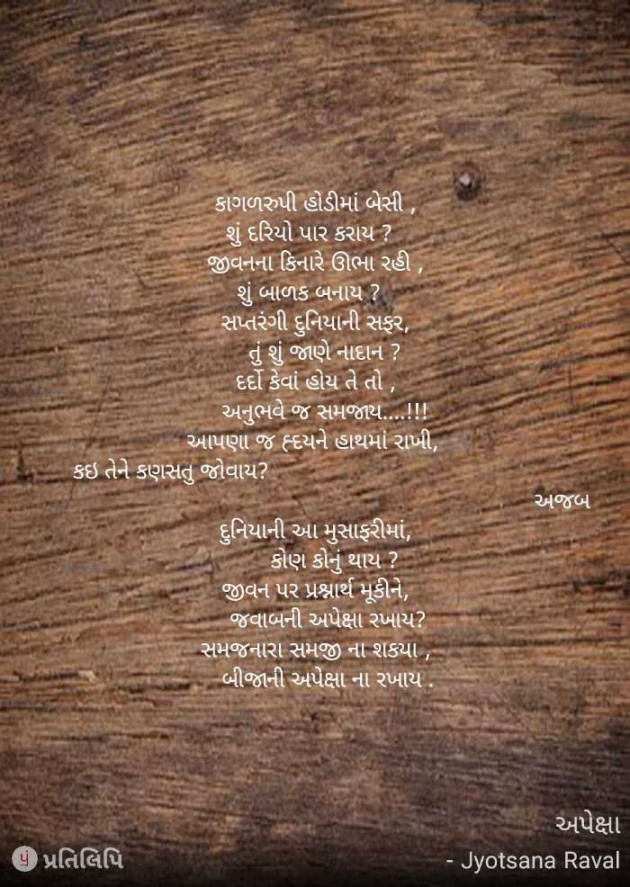 કાગળરુપી હોડીમાં બેસી ,
શું દરિયો પાર કરાય ?
જીવનના કિનારે ઊભા રહી ,
શું બાળક બનાય ?
સપ્તરંગી દુનિયાની સફર,
તું શું જાણે નાદાન ?
દર્દો કેવાં હોય તે તો ,
અનુભવે જ સમજાય....!!!
આપણા જ હ્દયને હાથમાં રાખી,
કઇ તેને કણસતુ જોવાય?
અજબ
દુનિયાની આ મુસાફરીમાં,
કોણ કોનું થાય ?
જીવન પર પ્રશ્નાર્થ મૂકીને,
જવાબની અપેક્ષા રખાય?
સમજનારા સમજી ના શકયા ,
બીજાની અપેક્ષા ના રખાય .
અપેક્ષા
- Jyotsana Raval
પ્રતિલિપિ